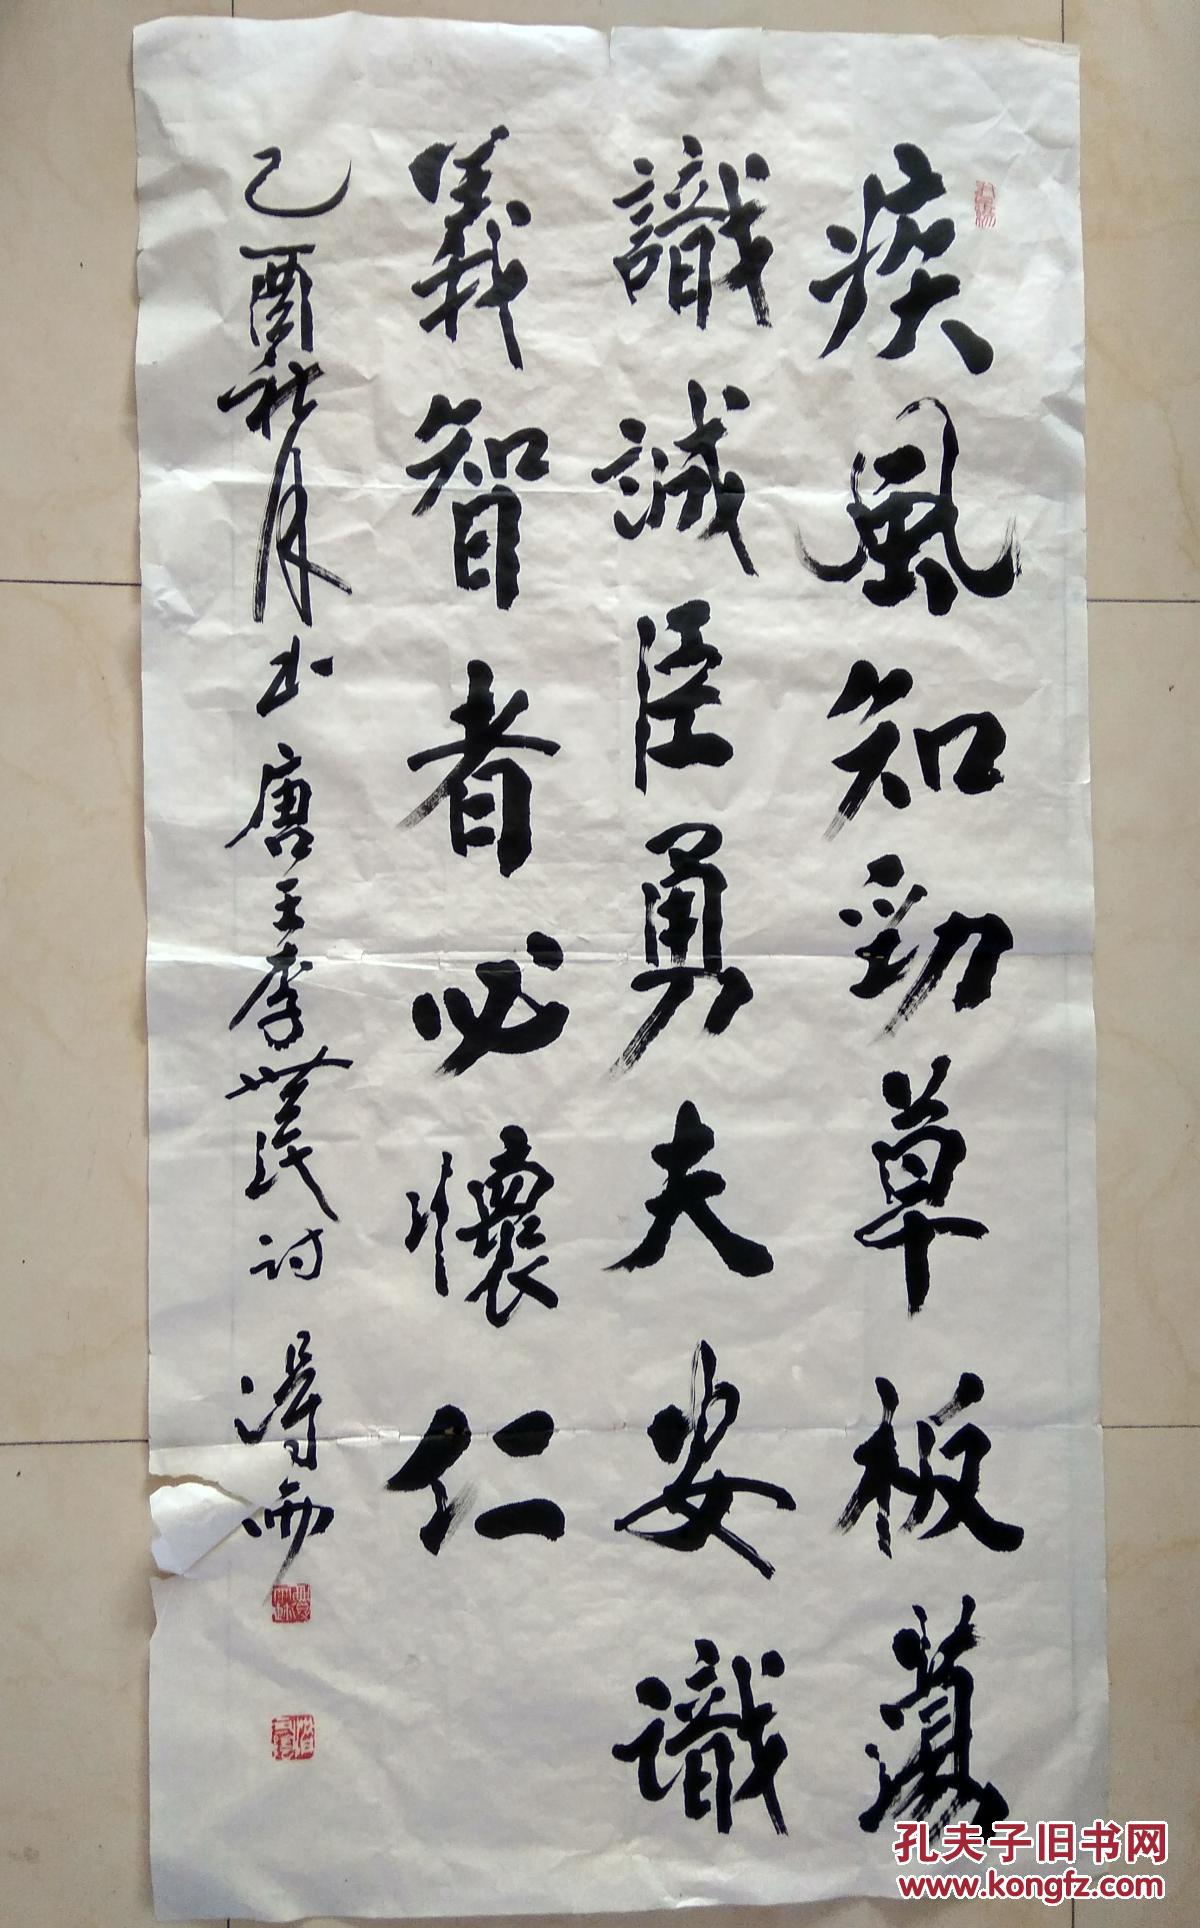 疾風知勁草板蕩
識誠臣勇夫安識
義智者必懷仁
乙酉秋月书唐王李世民诗
孔夫子旧书网
www.kongfz.com